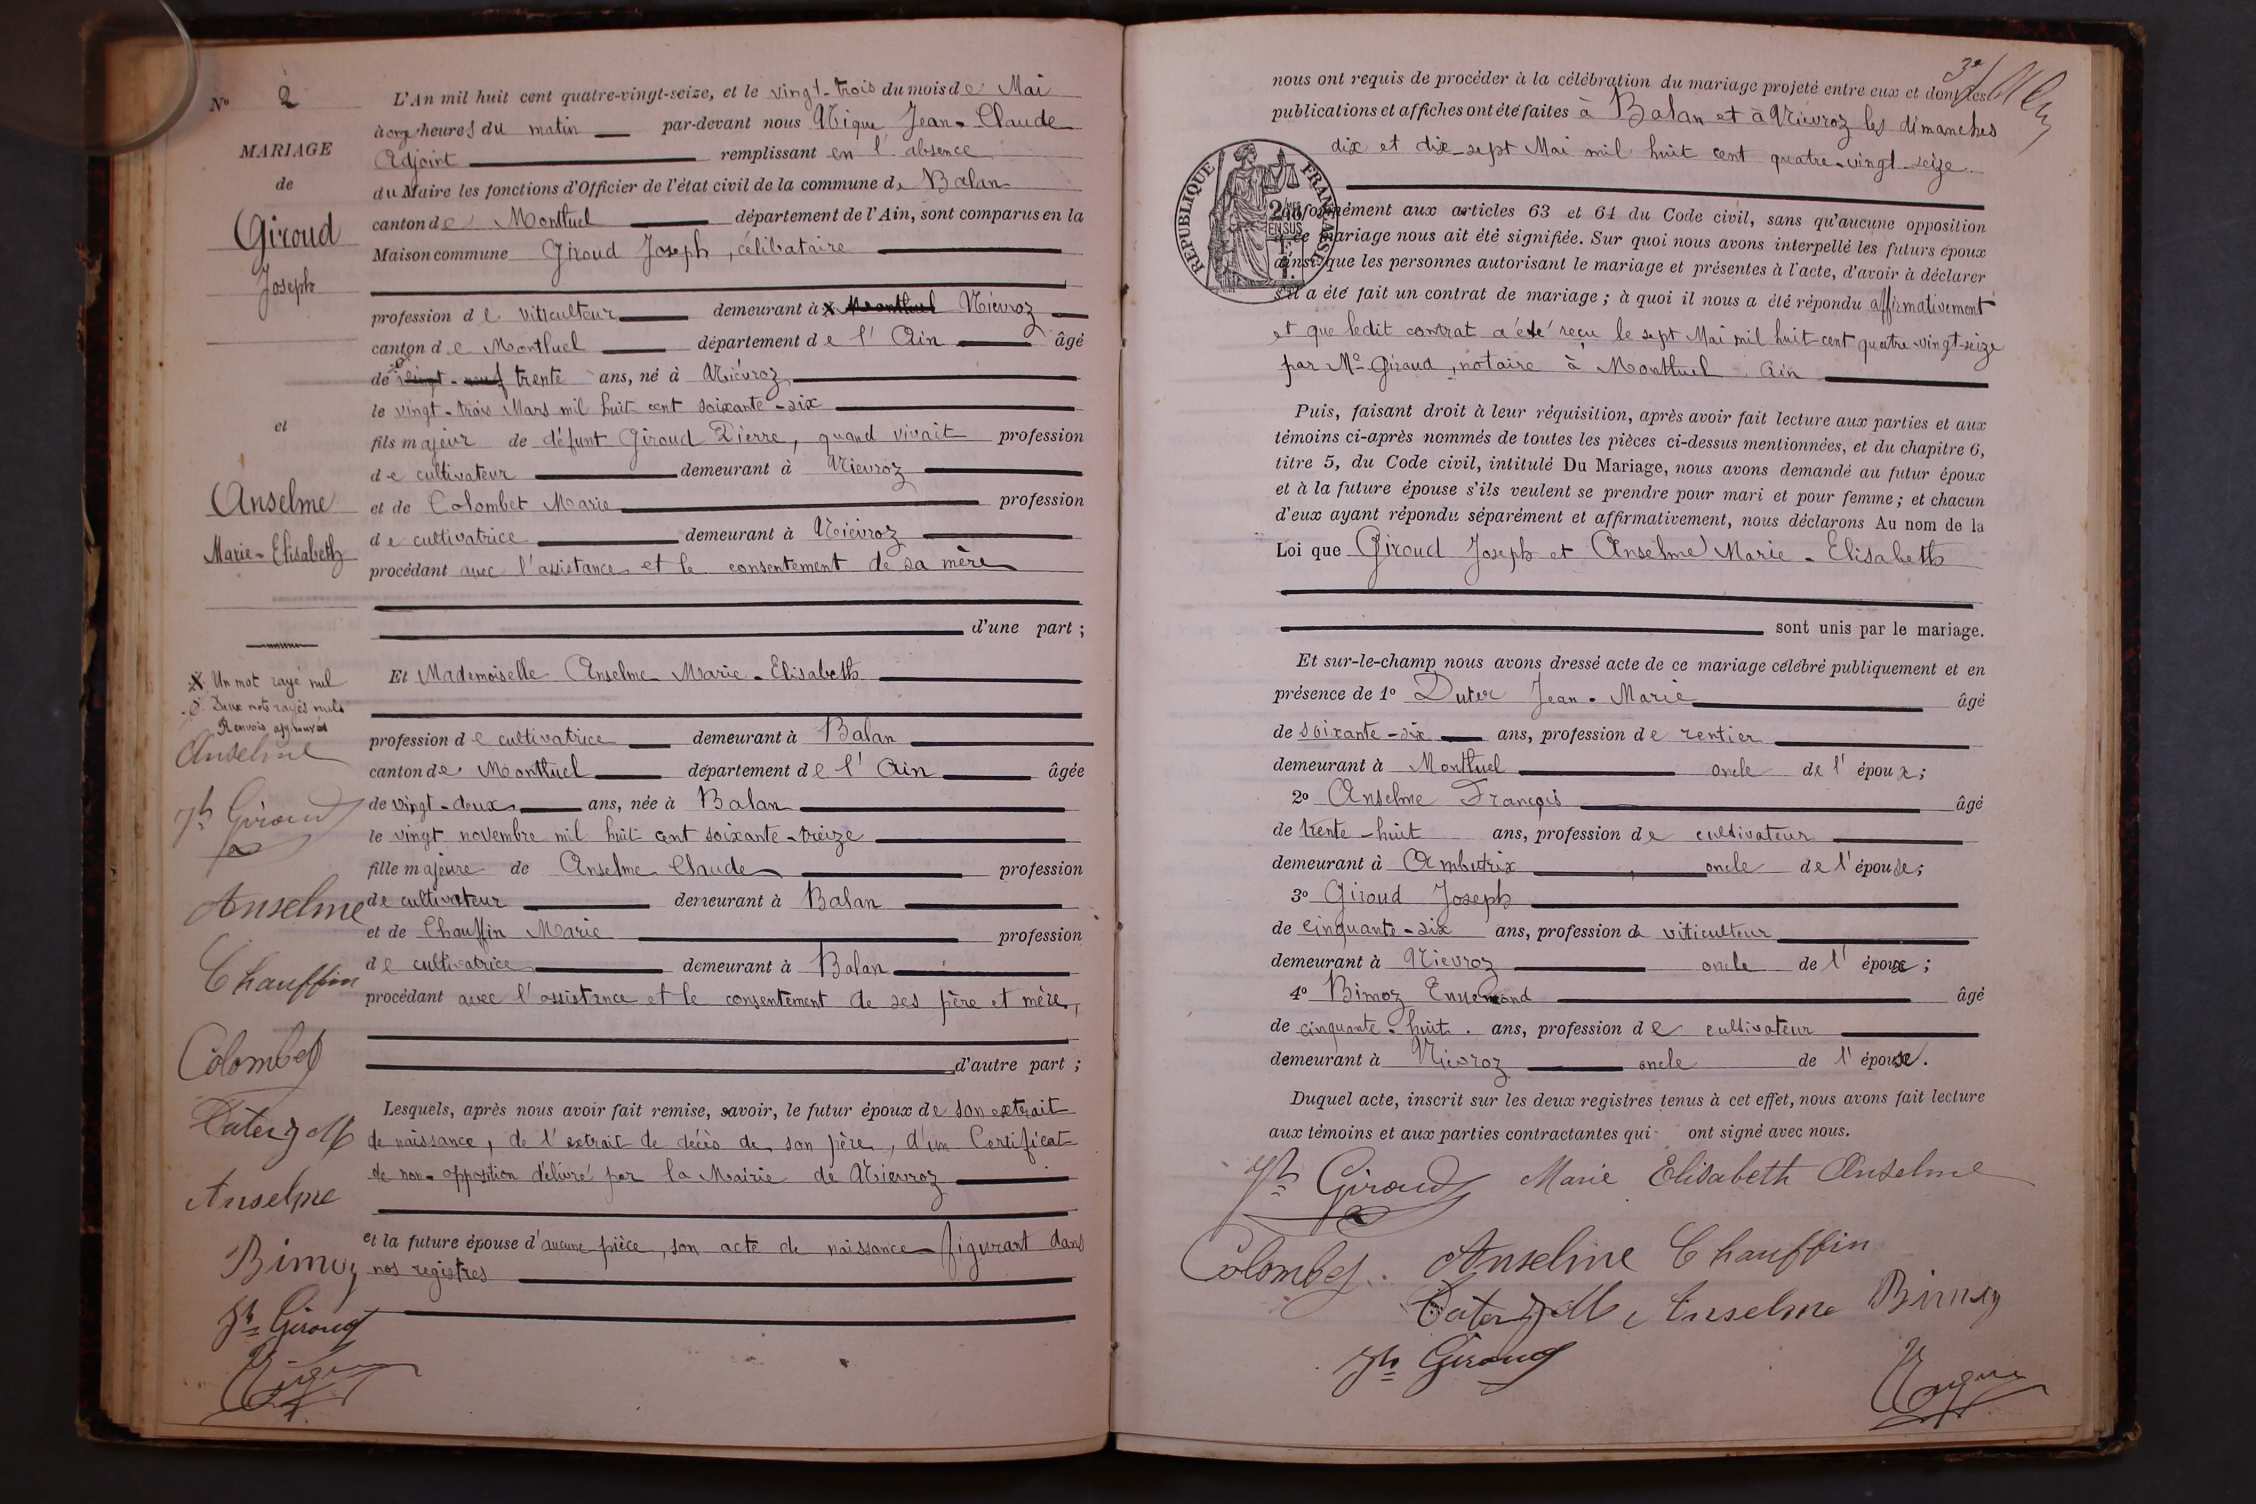 N° 2
MARIAGE
de
Giroud
Joseph
et
Anselme
Marie-Elisabeth
X Un mot rayé nul
Deux mots rayés nuls
Renvois approuvés
Anselme
Jh Giroud
Anselme
Chauffin
Colombet
Anselme
Bimoz
Jh Giroud
L'An mil huit cent quatre-vingt-seize, et le vingt-trois du mois de Mai
à onze heures du matin par-devant nous Nique Jean-Claude
Adjoint remplissant en l'absence
du Maire les fonctions d'Officier de l'état civil de la commune de Balan
canton de Montluel département de l'Ain, sont comparus en la
Maison commune Giroud Joseph, célibataire
profession de viticulteur demeurant à X Montluel Niévroz
canton de Montluel département de l'Ain âgé
de vingt-neuf trente ans, né à Niévroz
le vingt-trois Mars mil huit cent soixante-six
fils majeur de défunt Giroud Pierre, quand vivait profession
de cultivateur demeurant à Nievroz
et de Colombet Marie profession
de cultivatrice demeurant à Niévroz
procédant avec l'assistance et le consentement de sa mère
d'une part ;
Et Mademoiselle Anselme Marie-Elisabeth
profession de cultivatrice demeurant à Balan
canton de Montluel département de l'Ain âgée
de vingt-deux ans, née à Balan
le vingt novembre mil huit cent soixante-treize
fille majeure de Anselme Claude profession
de cultivateur demeurant à Balan
et de Chauffin Marie profession
de cultivatrice demeurant à Balan
procédant avec l'assistance et le consentement de ses père et mère,
d'autre part ;
Lesquels, après nous avoir fait remise, savoir, le futur époux de son extrait
de naissance, de l'extrait de décès de son père, d'un Certificat
de non-opposition délivré par la Mairie de Nievroz
et la future épouse d'aucune pièce, son acte de naissance figurant dans
nos registres
3e
nous ont requis de procéder à la célébration du mariage projeté entre eux et dont les
publications et affiches ont été faites à Balan et à Niévroz les dimanches
dix et dix-sept Mai mil huit cent quatre-vingt-seize.
REPUBLIQUE FRANÇAISE
2/10 EN SUS
conformément aux articles 63 et 64 du Code civil, sans qu'aucune opposition
à ce mariage nous ait été signifiée. Sur quoi nous avons interpellé les futurs époux
ainsi que les personnes autorisant le mariage et présentes à l'acte, d'avoir à déclarer
s'il a été fait un contrat de mariage ; à quoi il nous a été répondu affirmativement
et que ledit contrat a été reçu le sept Mai mil huit-cent quatre-vingt-seize
par Me Giraud, notaire à Montluel Ain
Puis, faisant droit à leur réquisition, après avoir fait lecture aux parties et aux
témoins ci-après nommés de toutes les pièces ci-dessus mentionnées, et du chapitre 6,
titre 5, du Code civil, intitulé Du Mariage, nous avons demandé au futur époux
et à la future épouse s'ils veulent se prendre pour mari et pour femme ; et chacun
d'eux ayant répondu séparément et affirmativement, nous déclarons Au nom de la
Loi que Giroud Joseph et Anselme Marie-Elisabeth
sont unis par le mariage.
Et sur-le-champ nous avons dressé acte de ce mariage célébré publiquement et en
présence de 1° Duter Jean-Marie âgé
de soixante-six ans, profession de rentier
demeurant à Montluel oncle de l'époux ;
2° Anselme François âgé
de trente-huit ans, profession de cultivateur
demeurant à Ambutrix, oncle de l'épouse ;
3° Giroud Joseph
de cinquante-six ans, profession de viticulteur
demeurant à Nievroz oncle de l'époux ;
4° Bimoz Ennemond âgé
de cinquante-huit ans, profession de cultivateur
demeurant à Niévroz oncle de l'épouse.
Duquel acte, inscrit sur les deux registres tenus à cet effet, nous avons fait lecture
aux témoins et aux parties contractantes qui ont signé avec nous.
Jh Giroud Marie Elisabeth Anselme
Colombet Anselme Chauffin
Anselme Bimoz
Jh Giroud